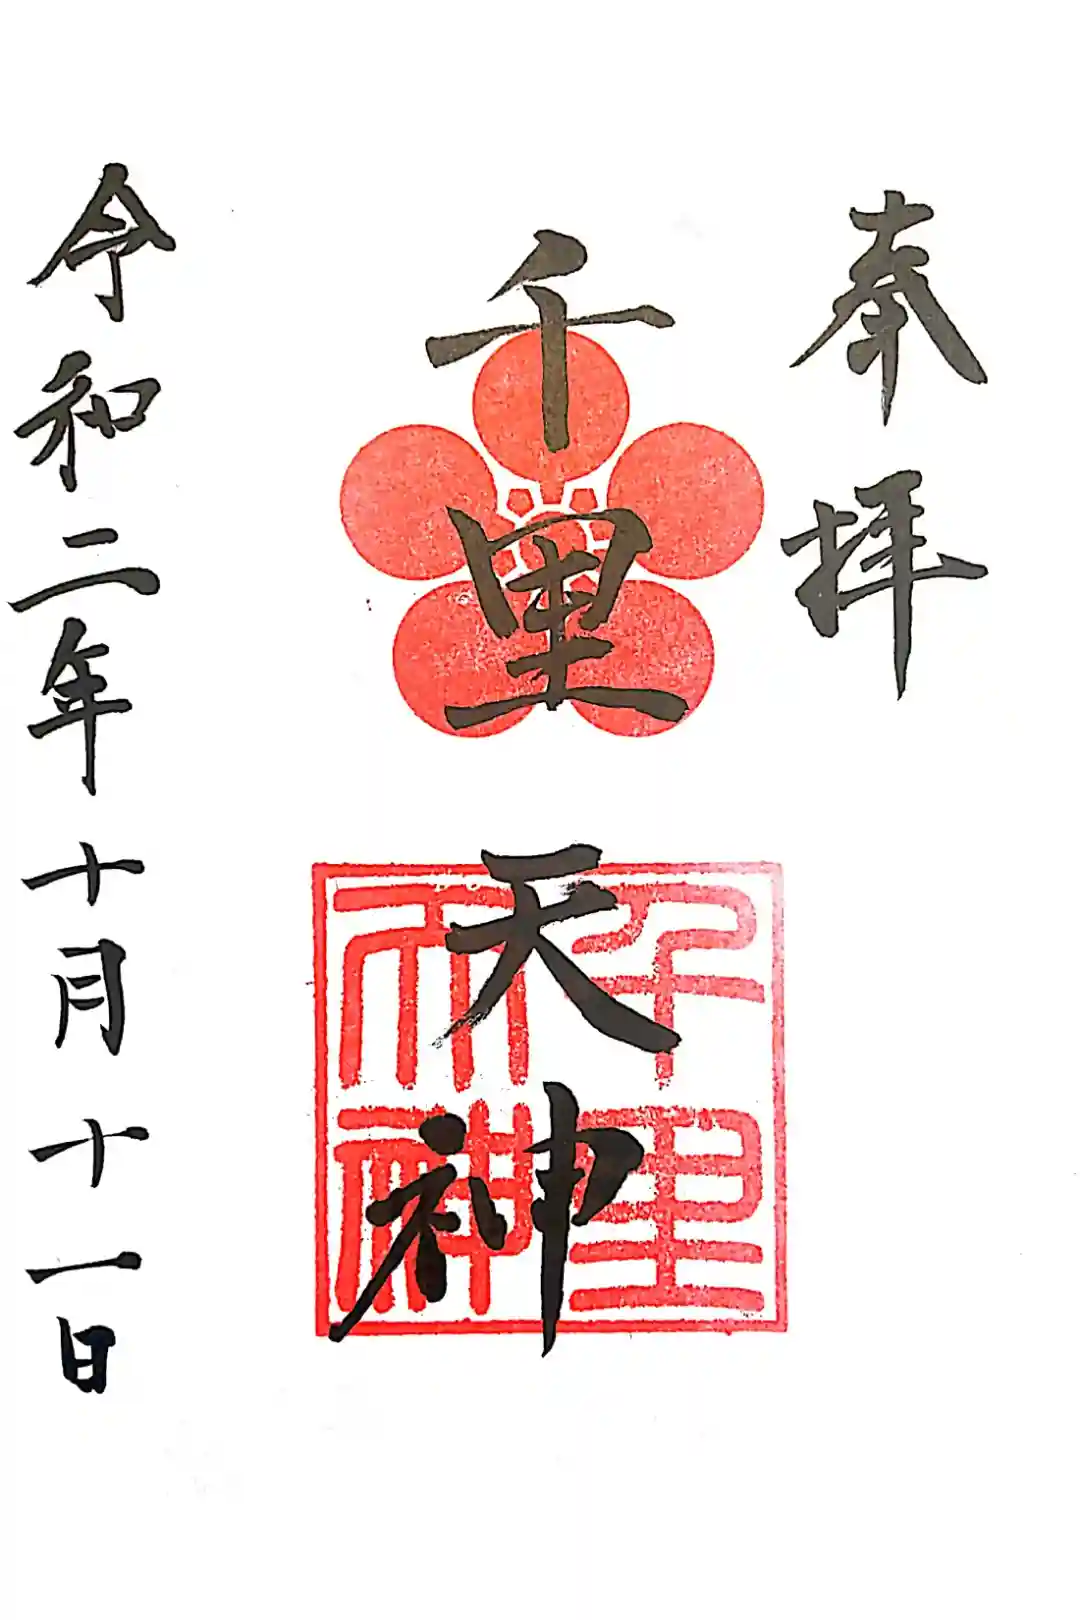 奉拝
千里天神
千里天神
令和二年十月十一日